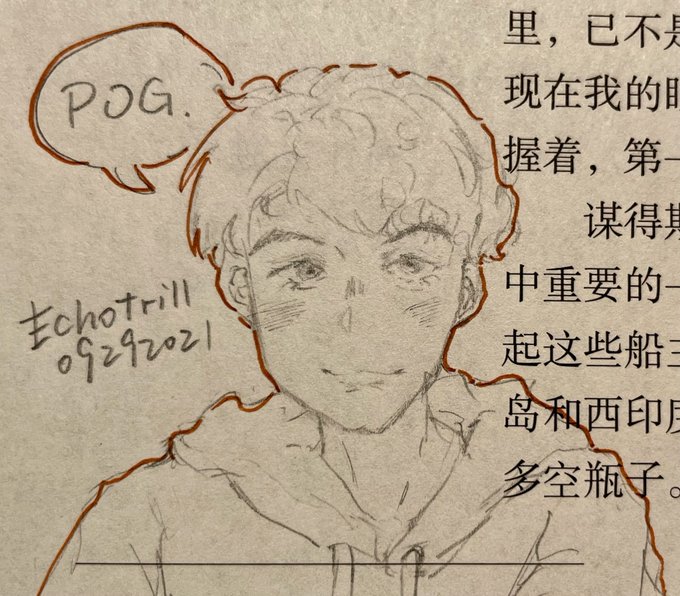 POG.
Echotrill
09292021
里，已不是
现在我的眼
握着，第一
谋得斯
中重要的一
起这些船主
岛和西印度
多空瓶子。